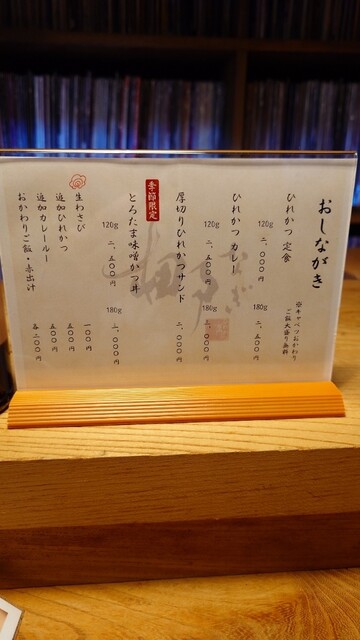 おしながき
※キャベツおかわり
ご飯大盛り無料
ひれかつ 定食
120g 二、〇〇〇円
180g 二、五〇〇円
ひれかつ カレー
120g 二、五〇〇円
180g 三、〇〇〇円
厚切りひれかつサンド
二、〇〇〇円
季節限定
とろたま味噌かつ丼
120g 二、五〇〇円
180g 三、〇〇〇円
生わさび 一〇〇円
追加ひれかつ 五〇〇円
追加カレールー 五〇〇円
おかわりご飯・赤出汁 各二〇〇円